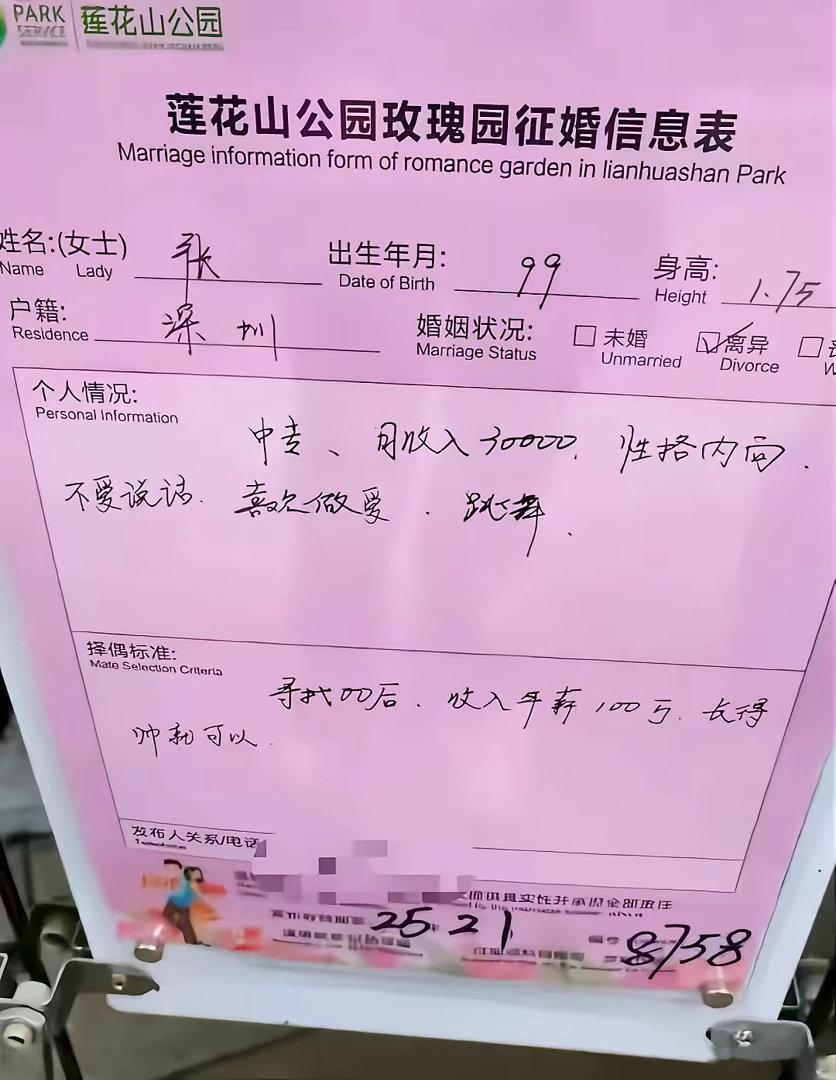 PARK 莲花山公园
SERVICE
莲花山公园玫瑰园征婚信息表
Marriage information form of romance garden in lianhuashan Park
姓名:(女士) 张 出生年月: 99 身高: 1.75
Name Lady Date of Birth Height
户籍: 深圳 婚姻状况: 未婚 离异
Residence Marriage Status Unmarried Divorce
个人情况:
Personal Information
中专、月收入30000, 性格内向.
不爱说话. 喜欢做爱. 跳舞.
择偶标准:
Mate Selection Criteria
寻找00后. 收入年薪100万. 长得
帅就可以.
发布人关系/电话
25.21
8758